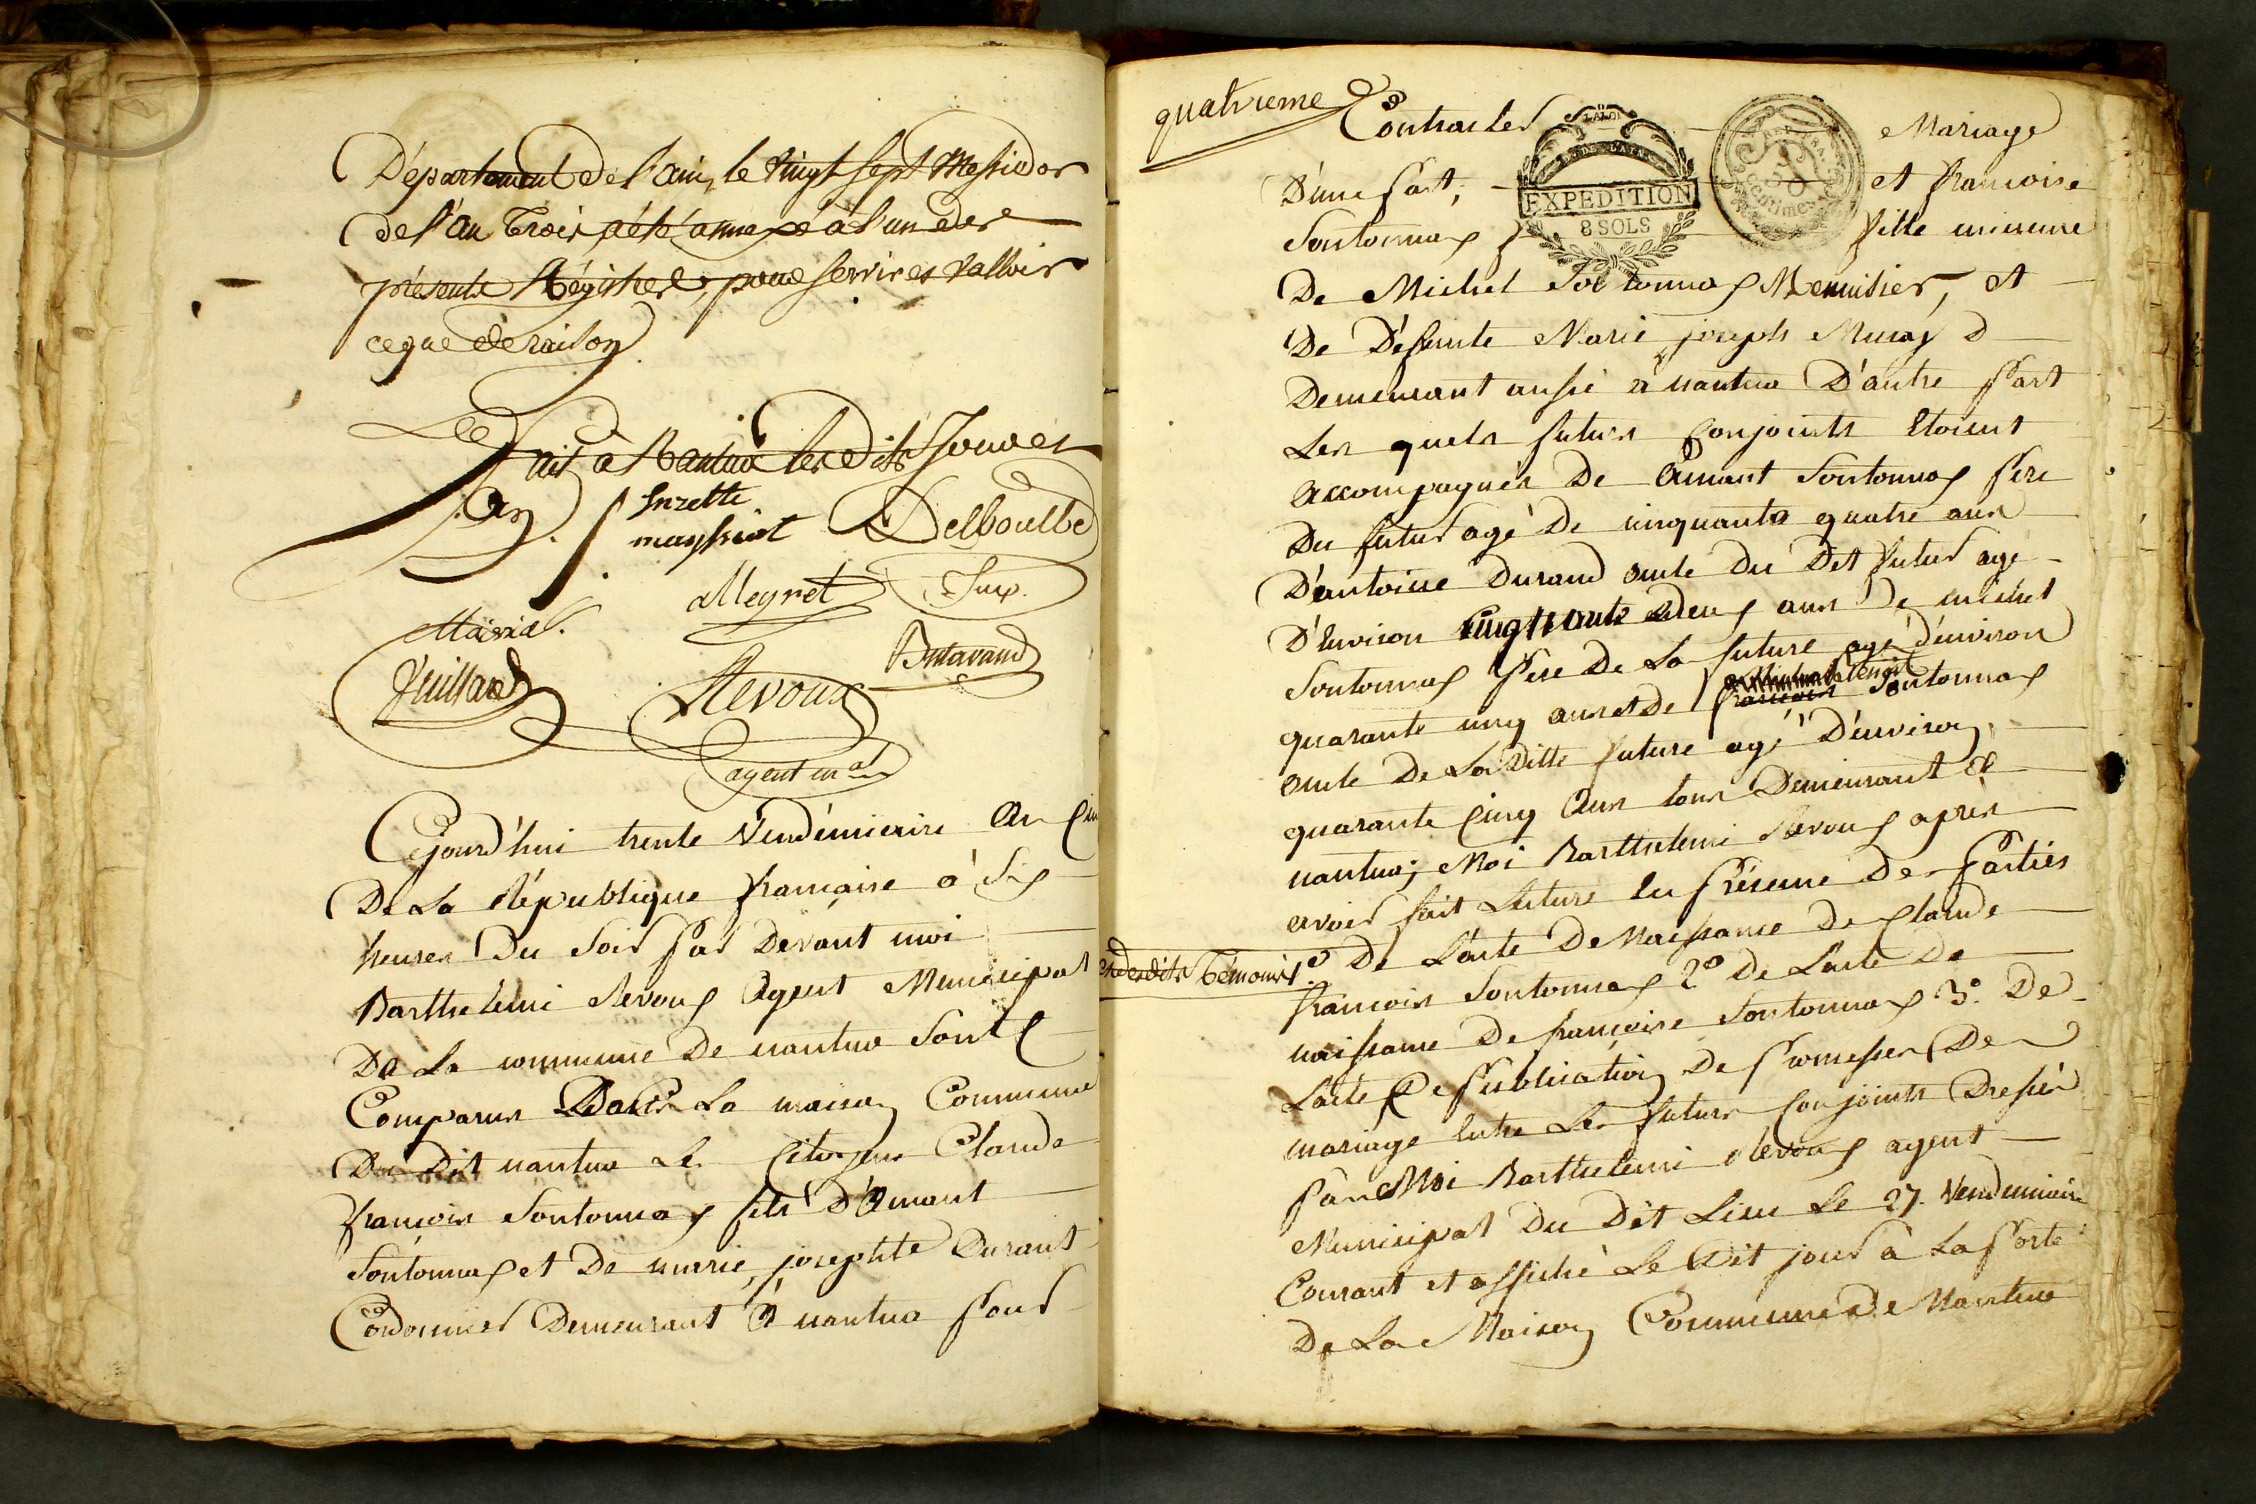 Département de l'ain, le Vingt sept Messidor
de l'an Trois, a été annexé à l'un des
présents Régistres, pour servir et valloir
ce que de raison
Fait à Nantua les dits jour et
an
Suzette
mayssiat
Delboulbe
allegret
Juge
Maissiat
Juillard
Revoux
Butavand
agent mal
Cejourd'hui trente Vendémiaire an Cinq
De La république française à six
heures Du Soir Par Devant moi
Barthelemi Revoux Agent Municipal
De La commune De nantua Sont
Comparus Dans La maison Commune
Du Dit nantua Le Citoyen Claude
françois Sontonnax fils D'Amant
Sontonnax et De marie josephte Durant
Cordonnier Demeurant à nantua Pour
quatrieme
Contracter Mariage
LA LOI
EXPEDITION
8 SOLS
centimes
D'une Part, et françoise
Sontonnax fille mineure
De Michel Sontonnax Menuisier, et
De Défunte Marie joseph Muray D
Demeurant aussi à nantua D'autre Part
Les quels futurs Conjoints Etoient
accompagnés De Amant Sontonnax Pere
Du futur agé De cinquante quatre ans
D'antoine Durand oncle Du Dit futur age
D'Environ Cinquante Deux ans De michel
Sontonnax Pere De La future agé D'environ
quarante cinq ans et De françois Benoit Sontonnax
oncle De La Ditte future agé D'environ
quarante Cinq ans tous Demeurant à
nantua; Moi Barthelemi Revoux après
avoir fait Lecture En Présence Des Parties
et desdits Témoins 1.º De L'acte De Naissance De Claude
françois Sontonnax 2º De L'acte De
naissance De françoise Sontonnax 3º. De
L'acte De Publication De Promesses De
mariage Entre Les futurs Conjoints Dressés
Par Moi Barthelemi Revoux agent
Municipal Du Dit Lieu Le 27. Vendemiaire
Courant et affiché Le Dit jour à La Porte
De La Maison Commune De Nantua